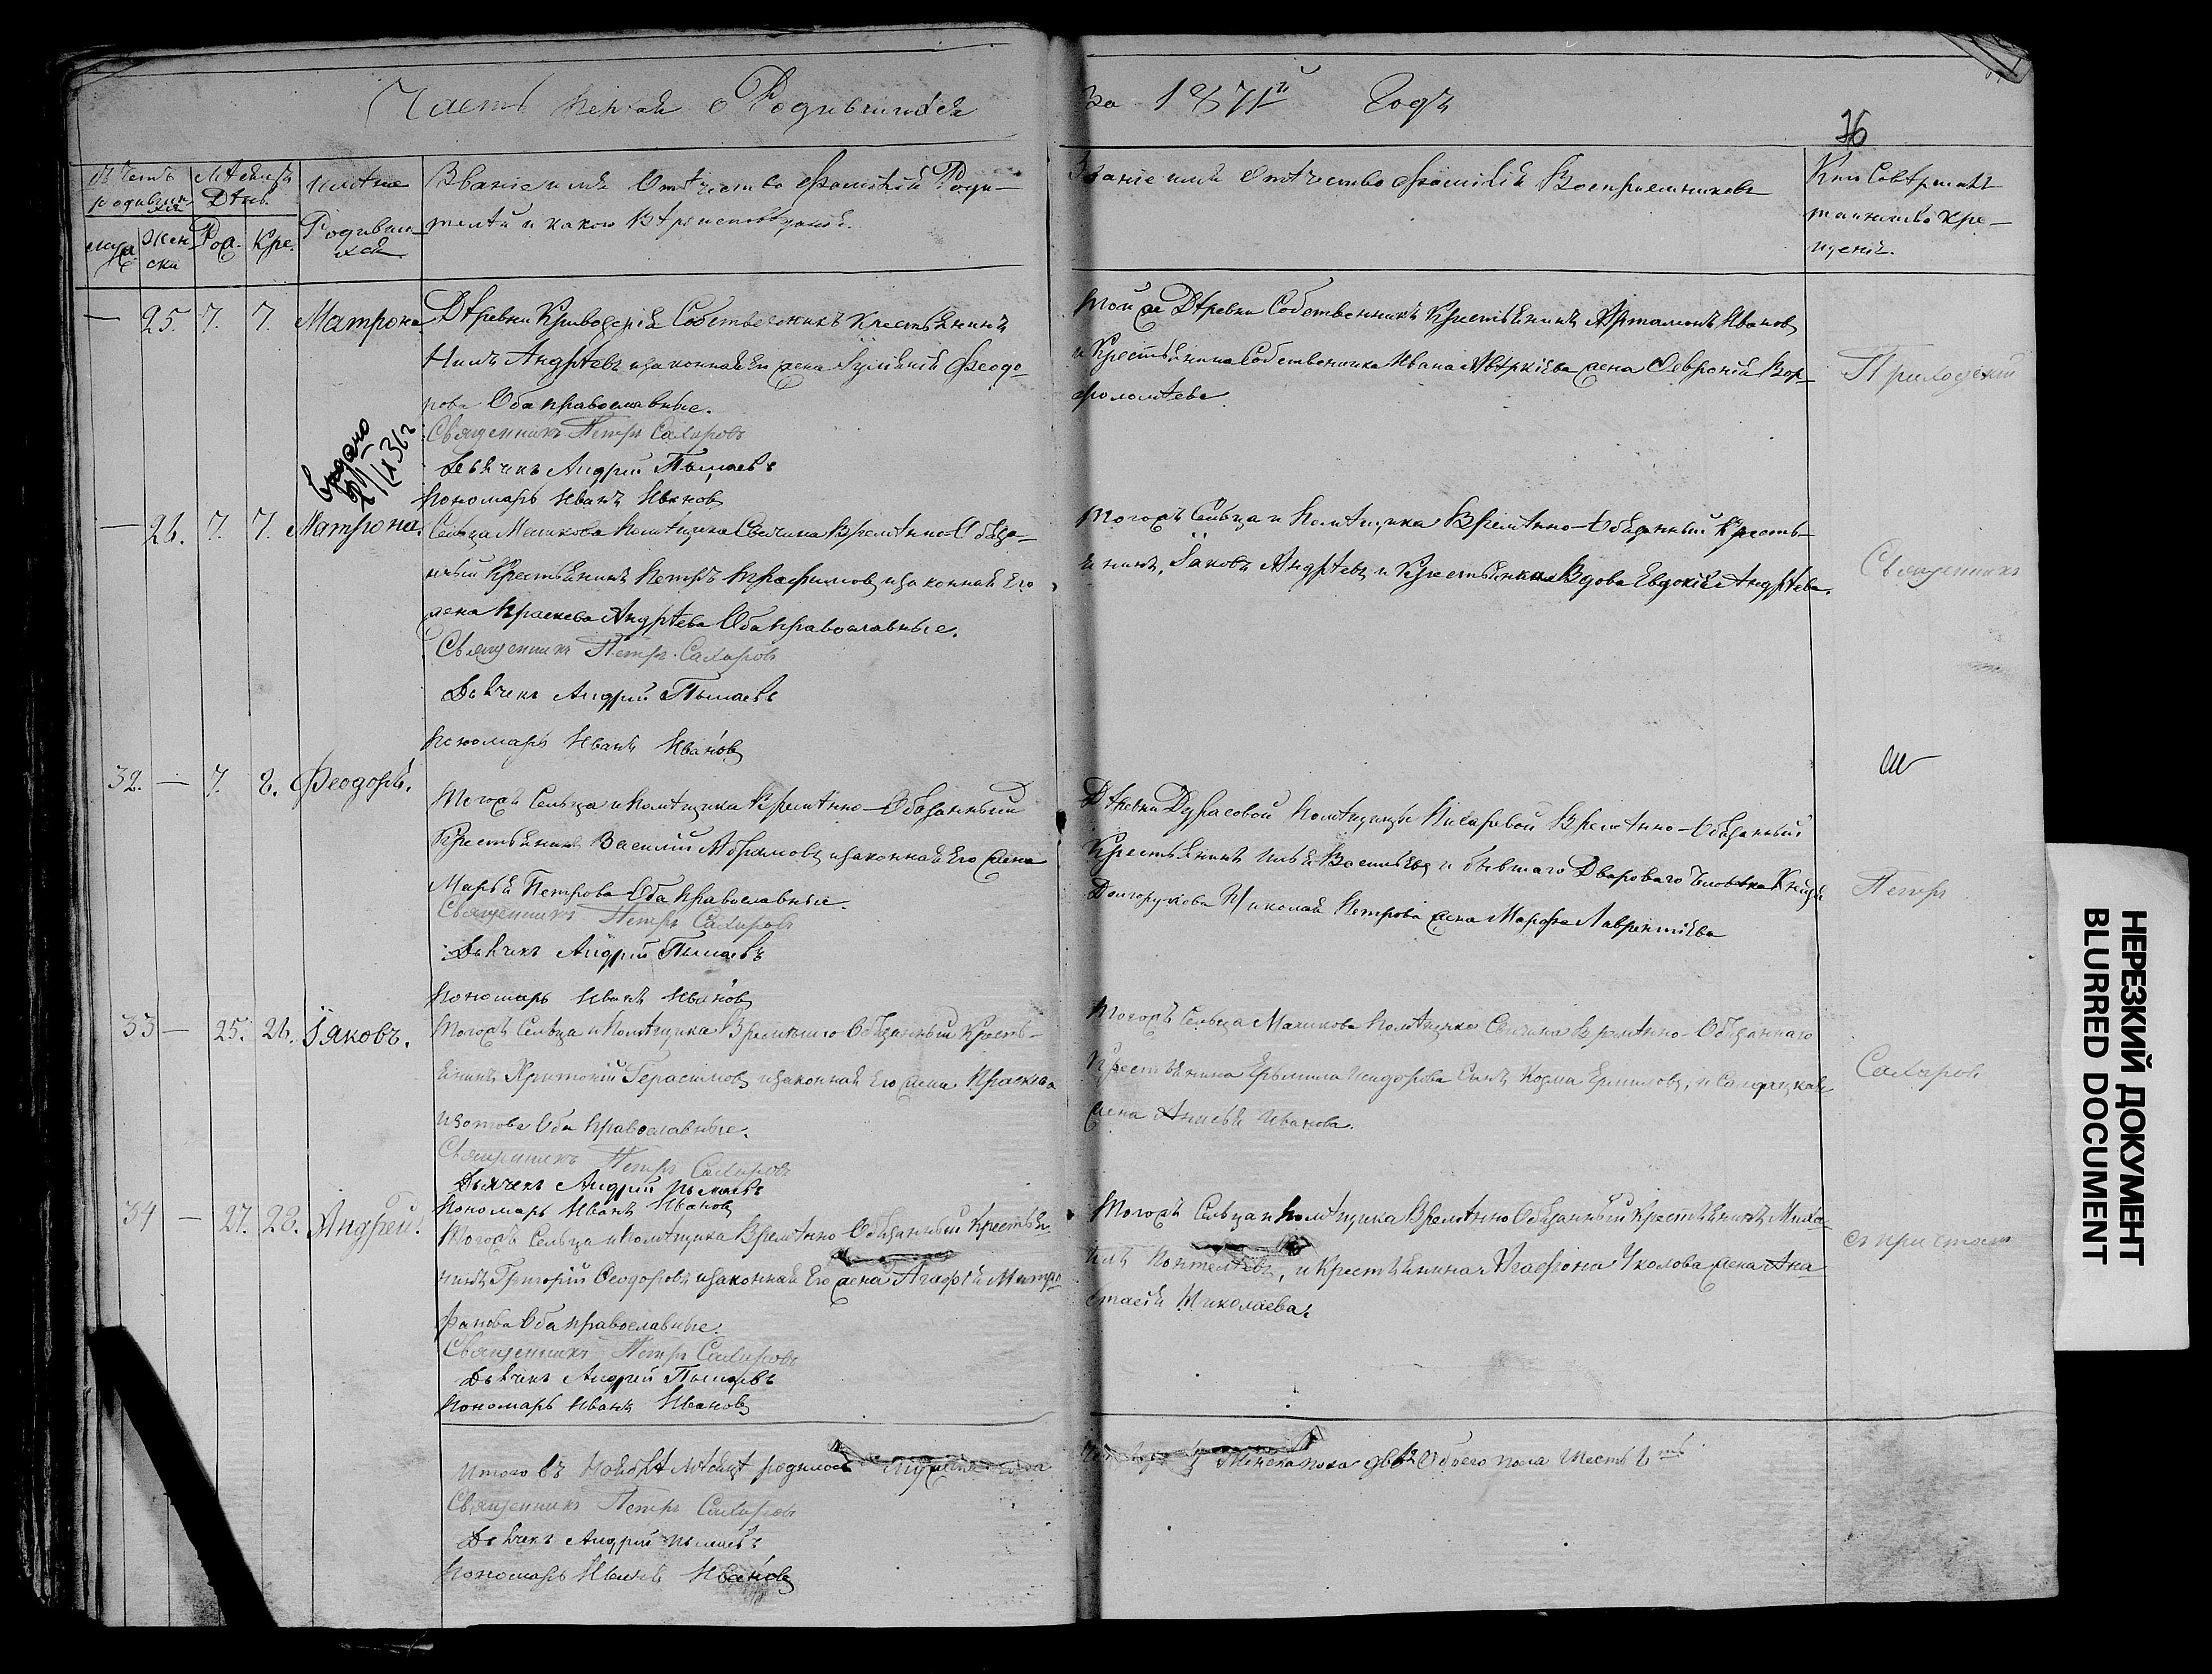 Часть первая о Родившихся
За 1871й Годъ
76
Счетъ родившихся
Мѣсяцъ День
Имяна Родившихся
Званіе имя Отчество Фамилія Роди-
телей и какого Вѣроисповѣданія.
Званіе имя Отчество Фамилія Воспріемниковъ
Кто Совѣршалъ
таинство Кре-
щенія.
муж. Жен-
ска
Род. Кре.
— 25. 7. 7. Матрона
Дѣревни Собственникъ Крестьянинъ
Нилъ Андрѣевъ изаконная Его жена Іуліянія Феодо-
рова Оба православные.
Священникъ Петръ Сахаровъ
Дьячекъ Андрей
Пономарь Иванъ Ивановъ
Той же Дѣревни Собственникъ Крестьянинъ Артамонъ Ивановъ
и Крестьянина Собственника Ивана Авѣркіева жена Февронія Вар-
фоломѣева
Приходскій
— 26. 7. 7. Матрона.
Сельца Машкова Помѣщика Свечина Времѣнно-Обяза-
нный Крестьянинъ Петръ Трофимовъ изаконная Его
жена Праскева Андрѣева Оба православные.
Священникъ Петръ Сахаровъ
Дьячекъ Андрей
Пономарь Иванъ Ивановъ
Тогожъ Сельца и Помѣщика Времѣнно-Обязанный Кресть-
янинъ, Іаковъ Андрѣевъ и Крестьянская Вдова Евдокія Андрѣева.
Священникъ
32. — 7. 8. Феодоръ.
Тогожъ Сельца и Помѣщика Времѣнно-Обязанный
Крестьянинъ Василій Абрамовъ изаконная Его жена
Марья Петрова Оба Православные.
Священникъ Петръ Сахаровъ
Дьячекъ Андрей
Пономарь Иванъ Ивановъ
Дѣревни Дурасовой Помѣщицы Времѣнно-Обязанный
Крестьянинъ Илья Васильевъ и бывшаго Двороваго Человѣка Князя
Долгорукова Николая Петрова жена Марфа Лаврентіева
Петръ
33 — 25. 26. Іаковъ.
Тогожъ Сельца и Помѣщика Времѣнно Обязанный Кресть-
янинъ Харитоній Герасимовъ изаконная Его жена Праскева
Изотова Оба Православные.
Священникъ Петръ Сахаровъ
Дьячекъ Андрей
Пономарь Иванъ Ивановъ
Тогожъ Сельца Машкова Помѣщика Свечина Времѣнно-Обязаннаго
Крестьянина Ермила Исидорова Сынъ Козма Ермиловъ, и Солдацкая
жена Анисья Иванова.
Сахаровъ
34 — 27. 28. Андрей.
Тогожъ Сельца и Помѣщика Времѣнно-Обязанный Крестья-
нинъ Григорій Феодоровъ изаконная Его жена Агафія Митро-
фанова Оба Православные.
Священникъ Петръ Сахаровъ
Дьячекъ Андрей
Пономарь Иванъ Ивановъ
Тогожъ Сельца и Помѣщика Времѣнно Обязанный Крестьянинъ Миха-
илъ Пантелѣевъ, и Крестьянина Агафона Уколова жена Ана-
стасія Николаева.
съ причтомъ
Итого въ Ноябрѣ Мѣсяцѣ родилось
Женска пола двѣ 2 Обоего пола Шесть 6ть
Священникъ Петръ Сахаровъ
Дьячекъ Андрей
Пономарь Иванъ Ивановъ
НЕРЕЗКИЙ ДОКУМЕНТ
BLURRED DOCUMENT